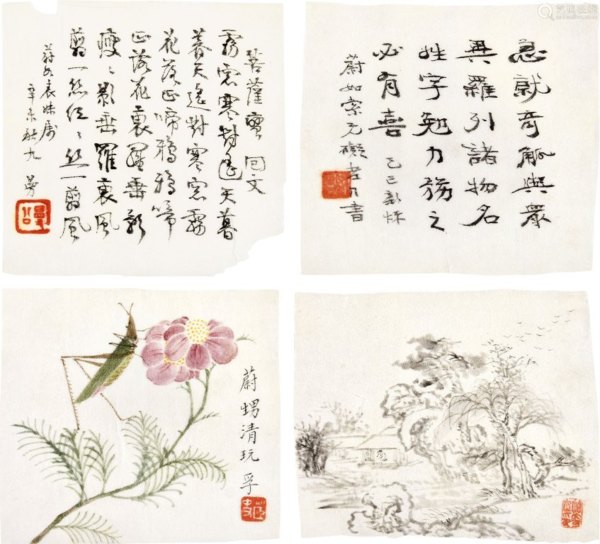 菩薩蠻 回文
霧窓寒對遙天暮
暮天遙對寒窓霧
花落正啼鴉鴉啼
正落花褎羅垂影
瘦〻影垂羅褎風
翦一絲紅〻絲一翦風
蔚如表妹屬
辛未秋九
急就奇觚與眾
異羅列諸物名
姓字勉力務之
必有憙 己巳
蔚如 書
蔚甥清玩 孚